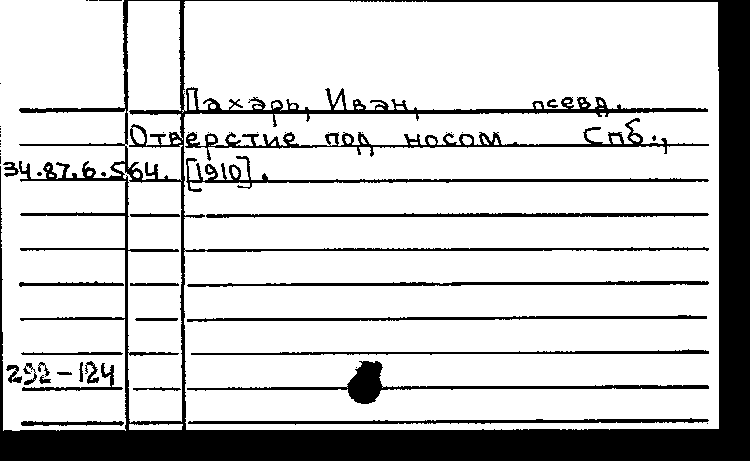 Пахарь, Иван, псевд.
Отверстие под носом. Спб.,
34.87.6.564. [1910].
292-124